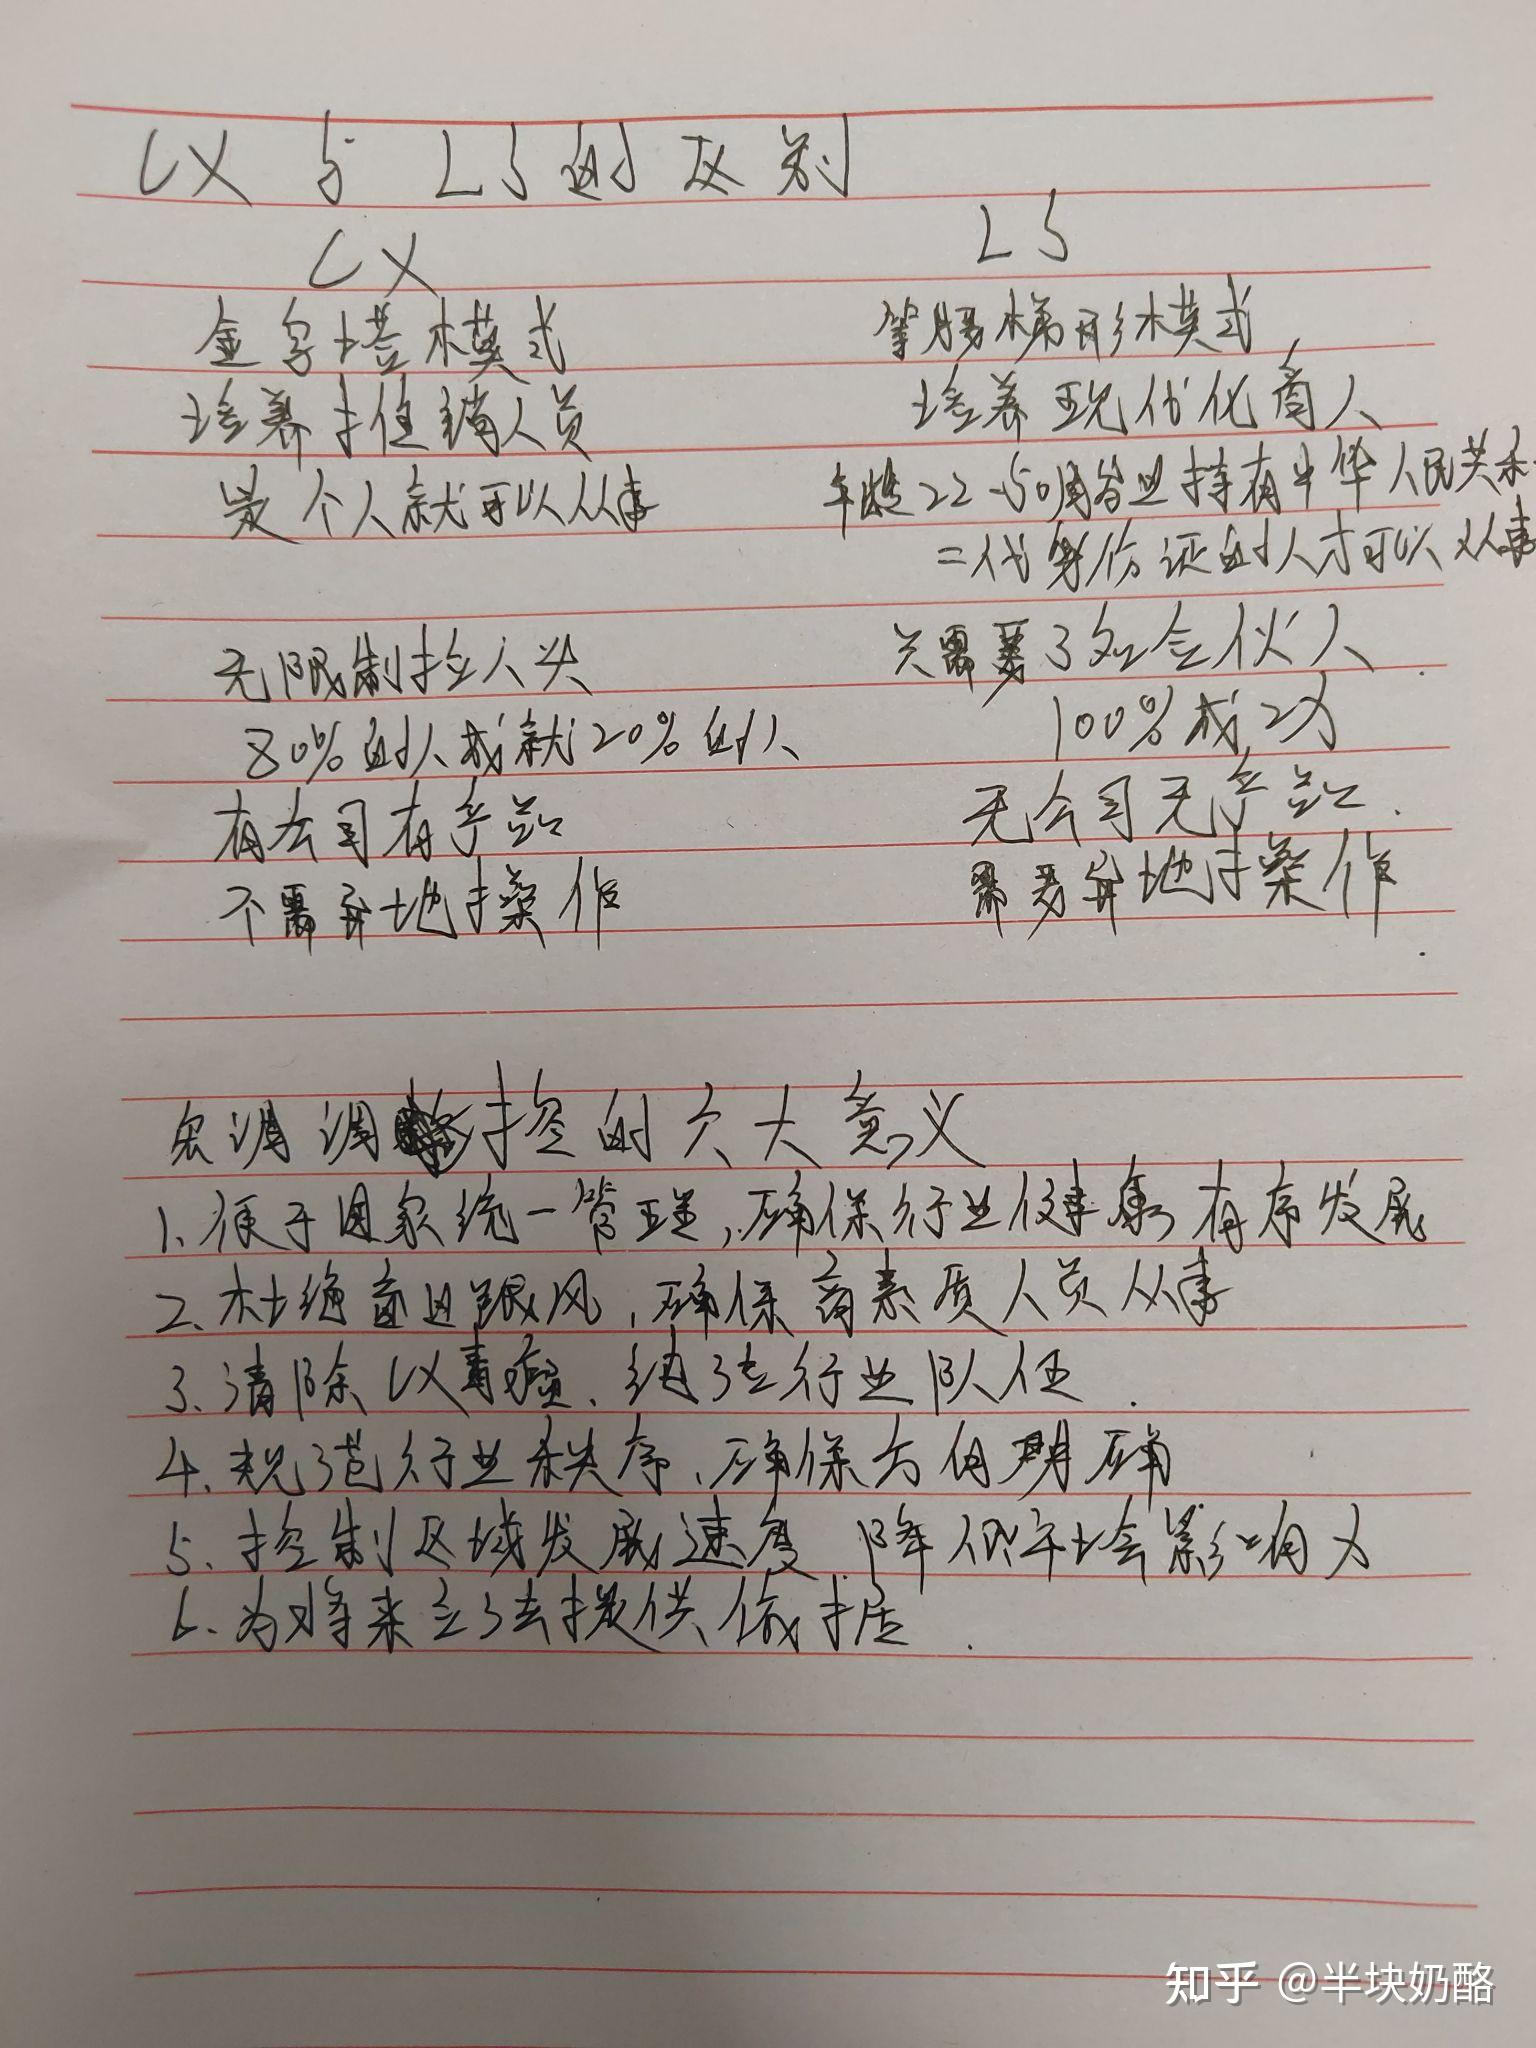 CX与LS的区别
CX
LS
金字塔模式
等腰梯形模式
培养推销人员
培养现代化商人
是个人就可以从事
年龄22-50周岁且持有中华人民共和
二代身份证的人才可以从事
无限制拉人头
只需要3名合伙人
80%的人成就20%的人
100%成功
有公司有产品
无公司无产品.
不需异地操作
需要异地操作
宏调调控的六大意义
1、便于国家统一管理,确保行业健康有序发展
2、杜绝盲目跟风,确保高素质人员从事
3、清除CX毒瘤、纯洁行业队伍.
4、规范行业秩序、确保方向明确
5、控制区域发展速度 降低社会影响力
6、为将来立法提供依据.
知乎 @半块奶酪